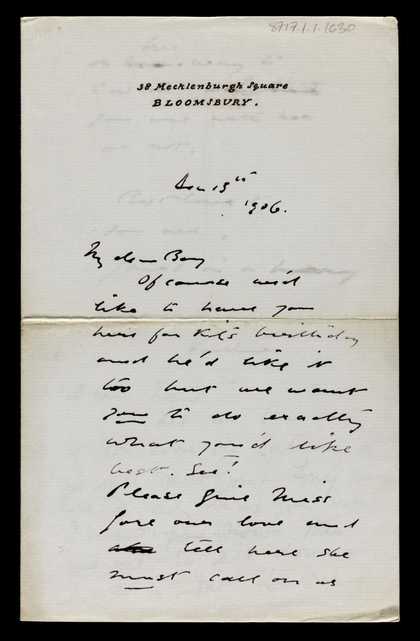 8717.1.1.1630
38 Mecklenburgh Square
BLOOMSBURY.
Dec 15th
1906.
My dear Boy
Of course we'd
like to have you
here for Kit's birthday
and he'd like it
too but we want
you to do exactly
what you'd like
best. See!
Please give Miss
Gore our love and
tell her she
must call on us